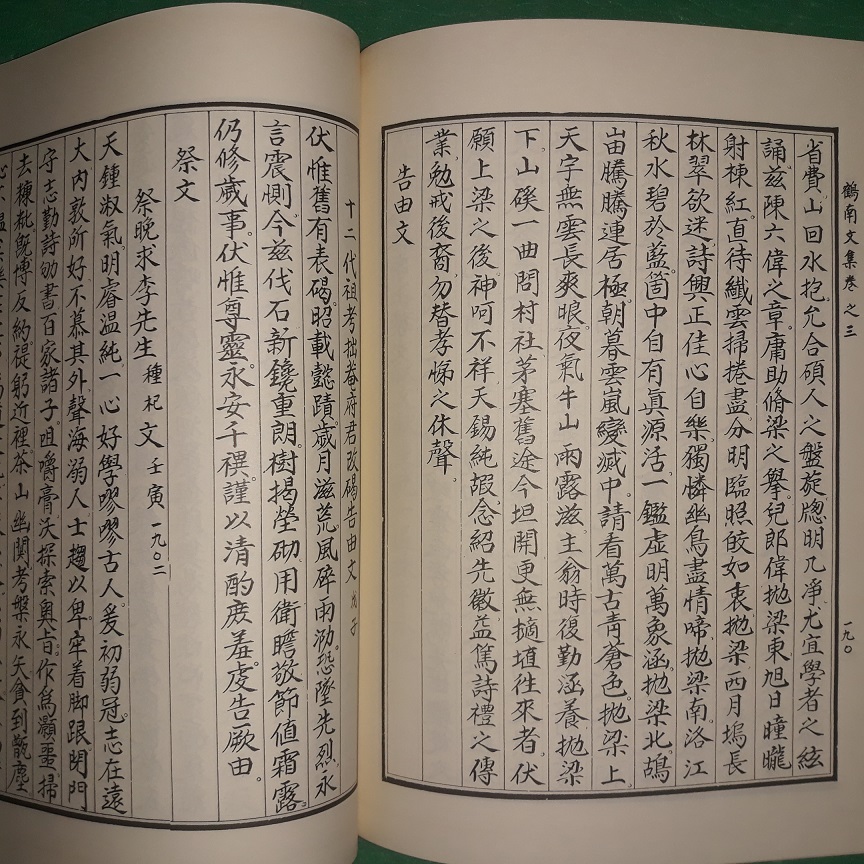 鶴南文集卷之三
一九〇
省費山回水抱允合碩人之盤旋牕明几凈尤宜學者之絃
誦玆陳六偉之章庸助脩梁之擧兒郎偉抛梁東旭日曈曨
射棟紅直待纖雲掃捲盡分明臨照皎如衷抛梁西月塢長
林翠欲迷詩興正佳心自樂獨憐幽鳥盡情啼抛梁南洛江
秋水碧於藍箇中自有眞源活一鑑虛明萬象涵抛梁北鵠
峀騰騰連居極朝暮雲嵐變滅中請看萬古靑蒼色抛梁上
天宇無雲長爽眼夜氣牛山雨露滋主翁時復勤涵養抛梁
下山磎一曲問村社茅塞舊途今坦開更無擿埴徃來者伏
願上梁之後神呵不祥天錫純嘏念紹先徽益篤詩禮之傳
業勉戒後裔勿替孝悌之休聲
告由文
十二代祖考拙菴府君改碣告由文 戊子
伏惟舊有表碣昭載懿蹟歲月滋荒風碎雨泐恐墜先烈永
言震惻今玆伐石新鑱重朗樹揭塋砌用衛瞻敬節値霜露
仍修歲事伏惟尊靈永安千禩謹以淸酌庶羞虔告厥由
祭文
祭晩求李先生種杞文 壬寅一九〇二
天鍾淑氣明睿溫純一心好學嘐嘐古人爰初弱冠志在遠
大內敦所好不慕其外聲海溺人士趨以卑牢着脚跟閉門
守志勤詩劬書百家諸子咀嚼膏沃探索奧旨作爲灝噩掃
去糠粃旣博反約禔躬近裡茶山幽関考槃永矢食到甑塵